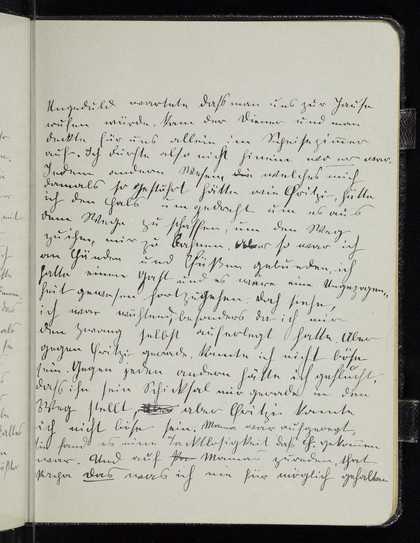 Ungeduld wartete dass man uns zur Jause
rufen würde. Kam der Diener und man
deckte für uns allein im Speisezimmer
auf. Ich durfte also nicht hinein wo er war.
Jedem andern Wesen welches mich
damals so gestört hätte wie Fritzi, hätte
ich den Hals umgedreht um es aus
dem Wege zu schaffen, um den Weg
zu ihm, mir zu bahnen. Aber so war ich
an Händen und Füßen gebunden, ich
hatte einen Gast und es wäre eine Ungezogen-
heit gewesen fortzugehen. Doch sehe,
ich war wüthend besonders da ich mir
den Zwang selbst auferlegt hatte. Aber
gegen Fritzi gerade konnte ich nicht böse
sein. Gegen jeden andern hätte ich geflucht,
dass ihn sein Schicksal mir gerade in den
Weg stellt, aber Fritzi konnte
ich nicht böse sein. Mama war aufgeregt,
sie fand es eine Tactlosigkeit dass E. gekommen
war. Und auf Mamas zureden, that
Papa das was ich nie für möglich gehalten